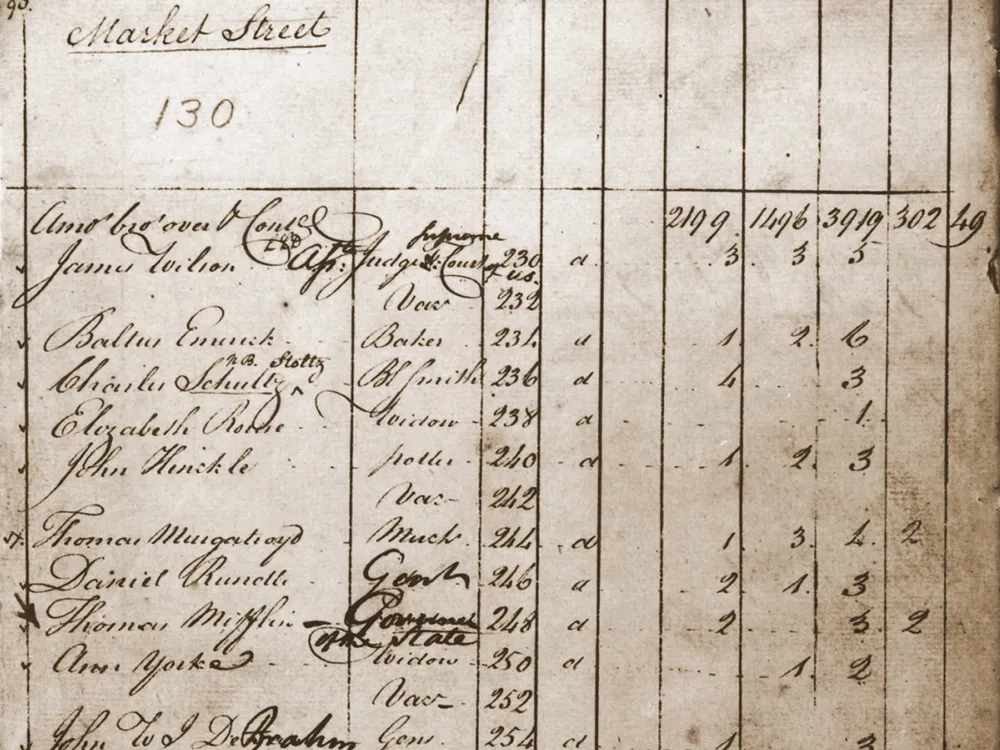 93.
Market Street
130
Amo' bro' over 2199 1496 3919 302 49
James Wilson Esq Judge Supreme Court 230 a 3 3 5
Vac 232
Baltus Emrick Baker 234 a 1 2 6
Charles Schultz N.B. Stoltz Bl Smith 236 a 4 3
Elizabeth Widow 238 a 1
John Hinckle potter 240 a 1 2 3
Vac 242
Thomas Murgatroyd Merch 244 a 1 3 2 2
Daniel Rundle Gent 246 a 2 1 3
Thomas Mifflin Governor of the State 248 a 2 3 2
Ann Yorke Widow 250 a 1 2
Vac 252
John W J De Braahm Gen. 254 a 1 3